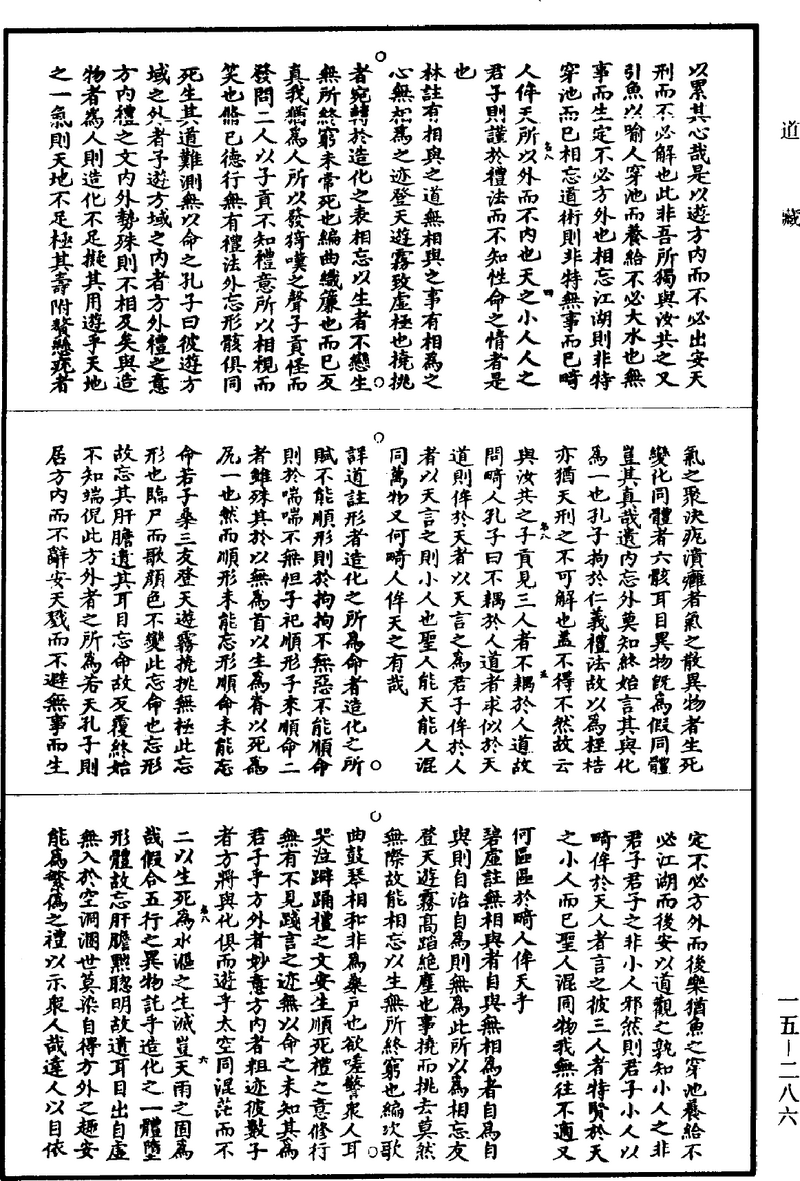 道藏
以累其心哉是以遊方内而不必出安天
刑而不必解也此非吾所獨與汝共之又
引魚以喻人穿池而養給不必大水也無
事而生定不必方外也相忘江湖則非特
穿池而已相忘道術則非特無事而已畸
人侔天所以外而不内也天之小人人之
君子則謹於禮法而不知性命之情者是
也
林註有相與之道無相與之事有相為之
心無相為之迹登天遊霧致虚極也撓挑
者宛轉於造化之表相忘以生者不戀生
無所終窮未常死也編曲織簾也而已反
真我猶為人所以發猗嘆之聲子貢怪而
發問二人以子貢不知禮意所以相視而
笑也脩已德行無有禮法外忘形骸俱同
死生其道難測無以命之孔子曰彼遊方
域之外者子遊方域之内者方外禮之意
方内禮之文内外勢殊則不相及矣與造
物者為人則造化不足擬其用遊乎天地
之一氣則天地不足極其壽附贅懸疣者
氣之聚決疣潰癰者氣之散異物者生死
變化同體者六骸耳目異物既為假同體
豈其真哉遺内忘外莫知終始言其與化
為一也孔子拘於仁義禮法故以為桎梏
亦猶天刑之不可解也蓋不得不然故云
與汝共之子貢見三人者不耦於人道故
問畸人孔子曰不耦於人道者求似於天
道則侔於天者以天言之為君子侔於人
者以天言之則小人也聖人能天能人混
同萬物又何畸人侔天之有哉
詳道註形者造化之所為命者造化之所
賦不能順形則於拘拘不無惡不能順命
則於喘喘不無怛子祀順形子來順命二
者雖殊其於以無為首以生為脊以死為
尻一也然而順形未能忘形順命未能忘
命若子桑三友登天遊霧撓挑無極此忘
形也臨尸而歌顔色不變此忘命也忘形
故忘其肝膽遺其耳目忘命故反覆終始
不知端倪此方外者之所為若夫孔子則
居方内而不辭安天戮而不避無事而生
定不必方外而後樂猶魚之穿池養給不
必江湖而後安以道觀之孰知小人之非
君子君子之非小人邪然則君子小人以
畸侔於天人者言之彼三人者特賢於天
之小人而已聖人混同物我無往不適又
何區區於畸人侔天乎
碧虚註無相與者自與無相為者自為自
與則自治自為則無為此所以為相忘友
登天遊霧高蹈絶塵也事撓而挑去莫然
無際故能相忘以生無所終窮也編次歌
曲鼓琴相和非為桑戸也欲嗟警衆人耳
哭泣躃踊禮之文安生順死禮之意修行
無有不見踐言之迹無以命之未知其為
君子乎方外者妙意方内者粗迹彼數子
者方將與化俱而遊乎太空同混茫而不
二以生死為水漚之生滅豈天雨之固為
哉假合五行之異物託乎造化之一體墮
形體故忘肝膽黜聰明故遺耳目出自虚
無入於空洞溷世莫染自得方外之趣安
能為繁僞之禮以示衆人哉達人以目依
一五-二八六